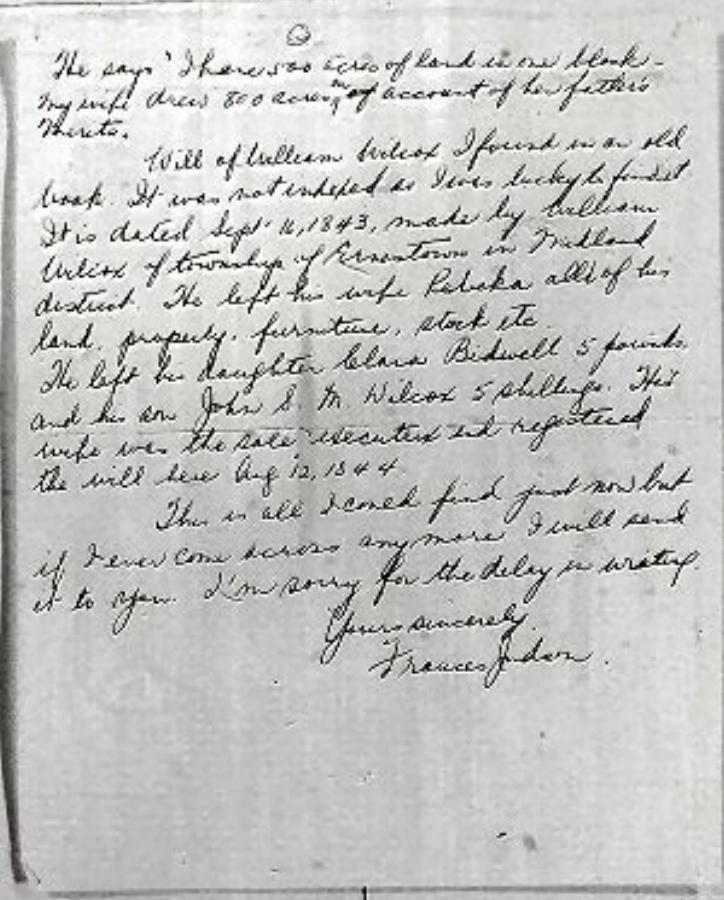 He says "I have 500 acres of land in one block -
my wife drew 800 acres of account of her father's
Merits.
Will of William Wilcox I found in an old
book. It was not indexed so I was lucky to find it
It is dated Sept. 16, 1843, made by William
Wilcox of township of Ernestown in Midland
district. He left his wife Rebeka all of his
land, property, furniture, stock etc.
He left his daughter Clara Bidwell 5 pounds
and his son John S. M. Wilcox 5 shillings. His
wife was the sole executrix and registered
the will here Aug 12, 1844
This is all I could find just now but
if I ever come across any more I will send
it to you. I'm sorry for the delay in writing.
Yours sincerely.
Frances Judson.